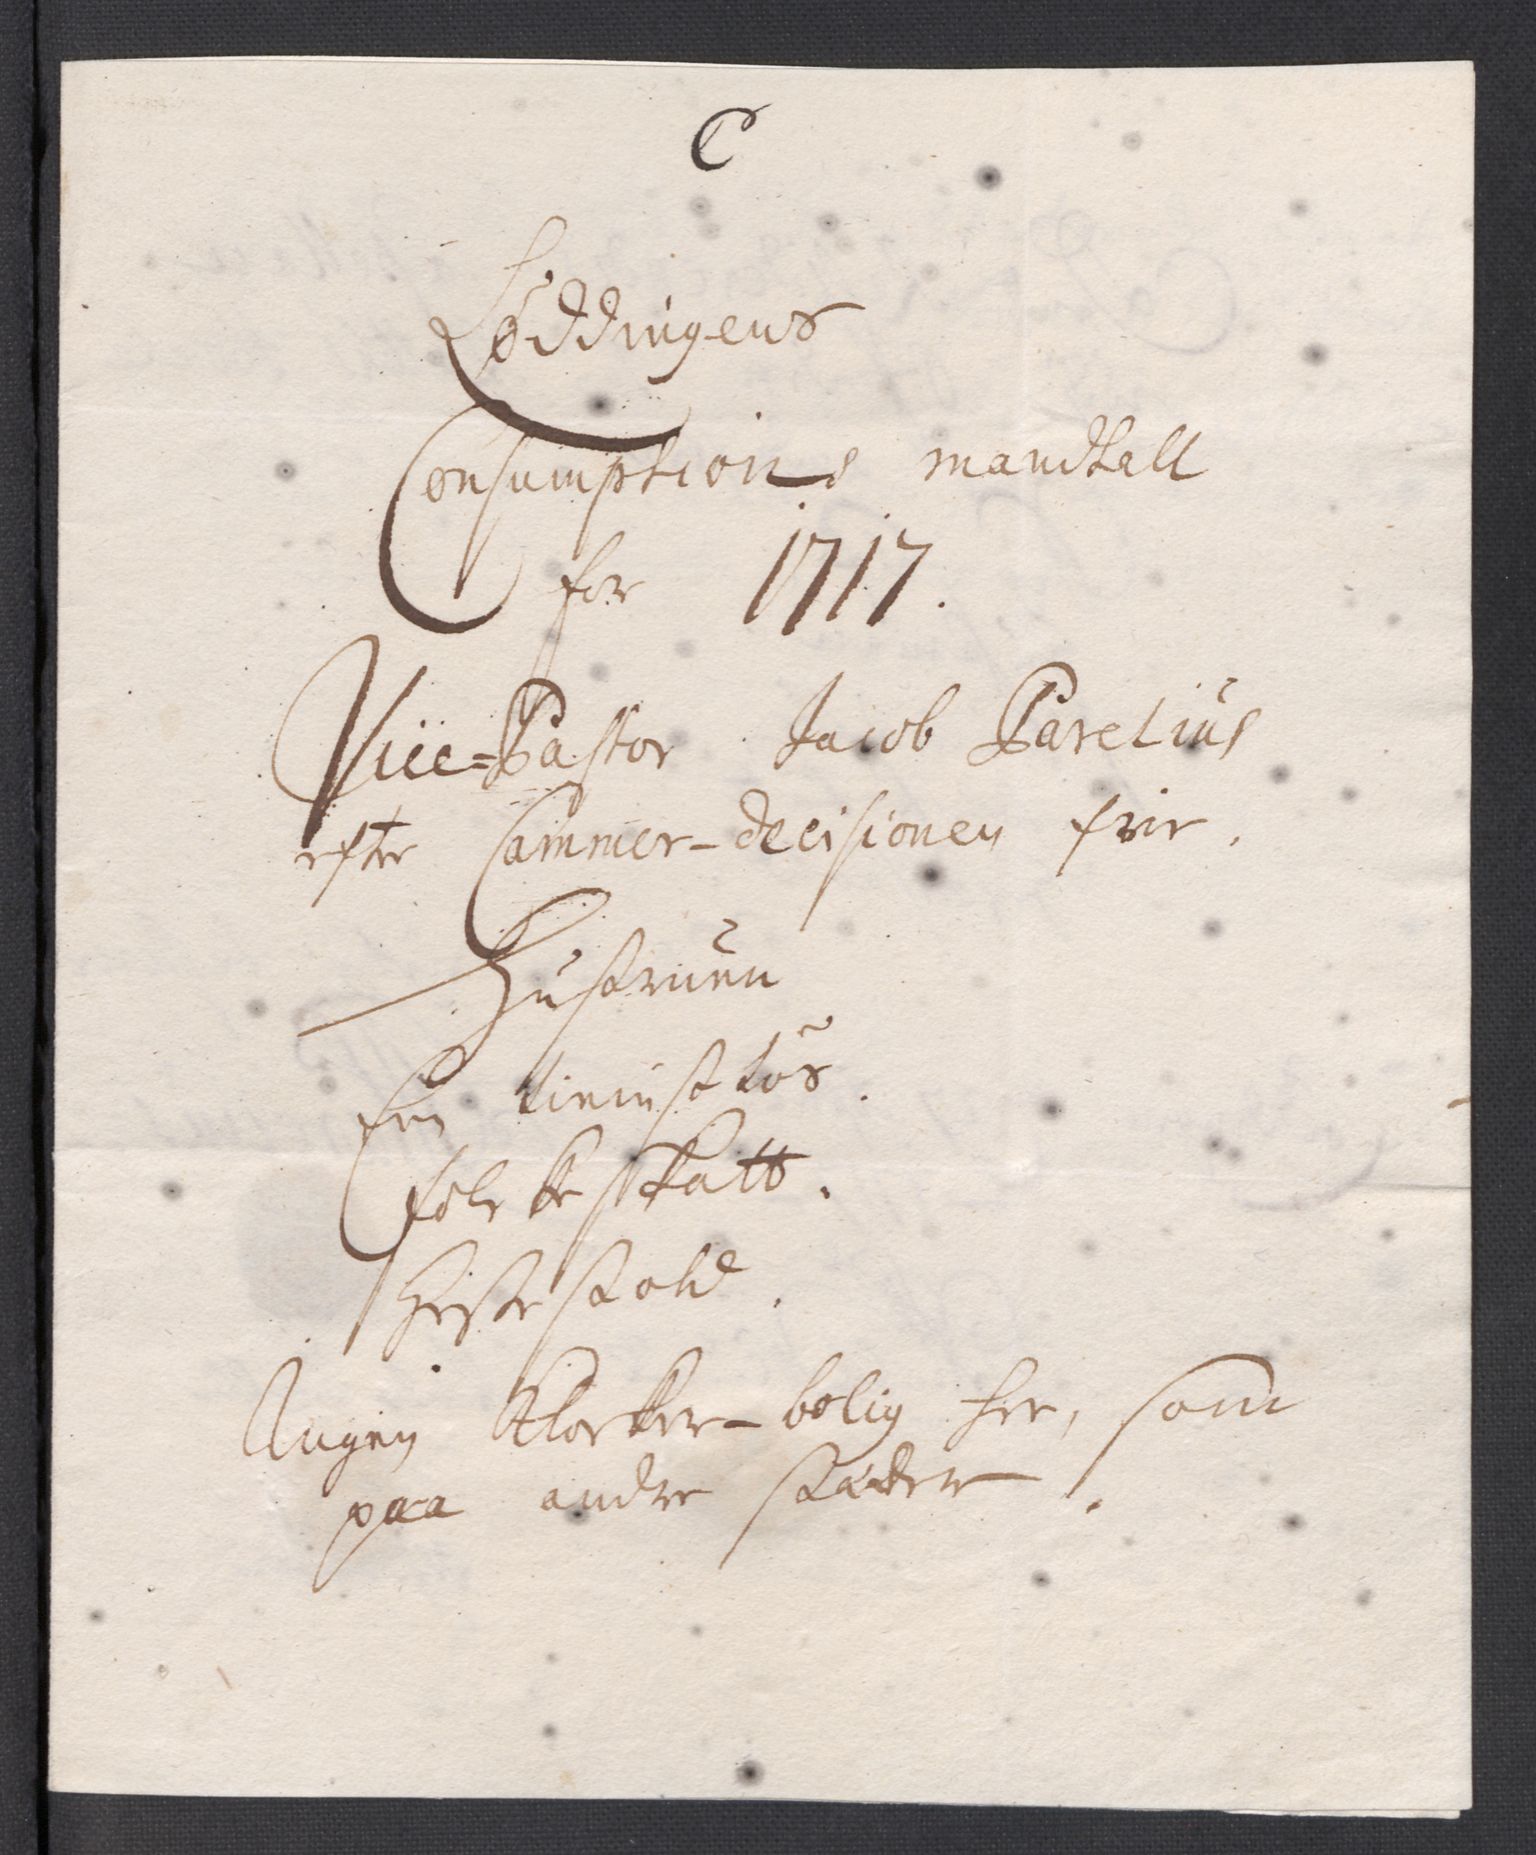 C
Löddingens
Consumptions mandtall
for 1717.
Vice=Pastor Jacob Parelius
efter Cammer-decisionen frie.
Hustruen
Een tieniste tös.
folcke skatt.
Heste skatt.
Ingen Klocker-bolig her, som
paa andre stæder.